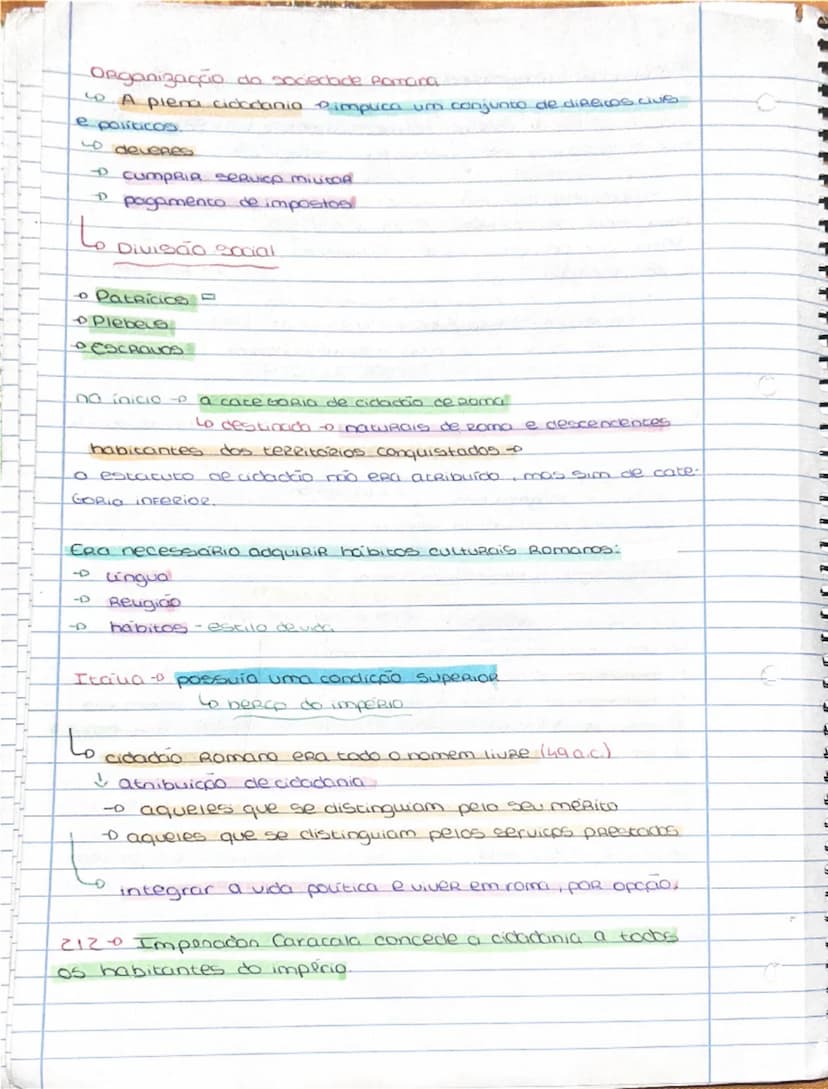 Organização da sociedade Romana
↳ A plena cidadania → implica um conjunto de direitos civis
e políticos.
↳ deveres
→ cumprir serviço militar
→ pagamento de impostos
↳ Divisão social
→ Patrícios
→ Plebeus
→ Escravos
no início → a categoria de cidadão de Roma
↳ destinada → naturais de Roma e descendentes
habitantes dos territórios conquistados →
o estatuto de cidadão não era atribuído, mas sim de cate-
goria inferior.
Era necessário adquirir hábitos culturais Romanos:
→ Língua
→ Religião
→ hábitos - estilo de vida
Itália → possuia uma condição superior
↳ berço do império
↳ cidadão Romano era todo o homem livre (49 a.c.)
↓ atribuição de cidadania
→ aqueles que se distinguiam pelo seu mérito
→ aqueles que se distinguiam pelos serviços prestados
↳ integrar a vida política e viver em roma, por opção.
212 → Imperador Caracala concede a cidadania a todos
os habitantes do império.